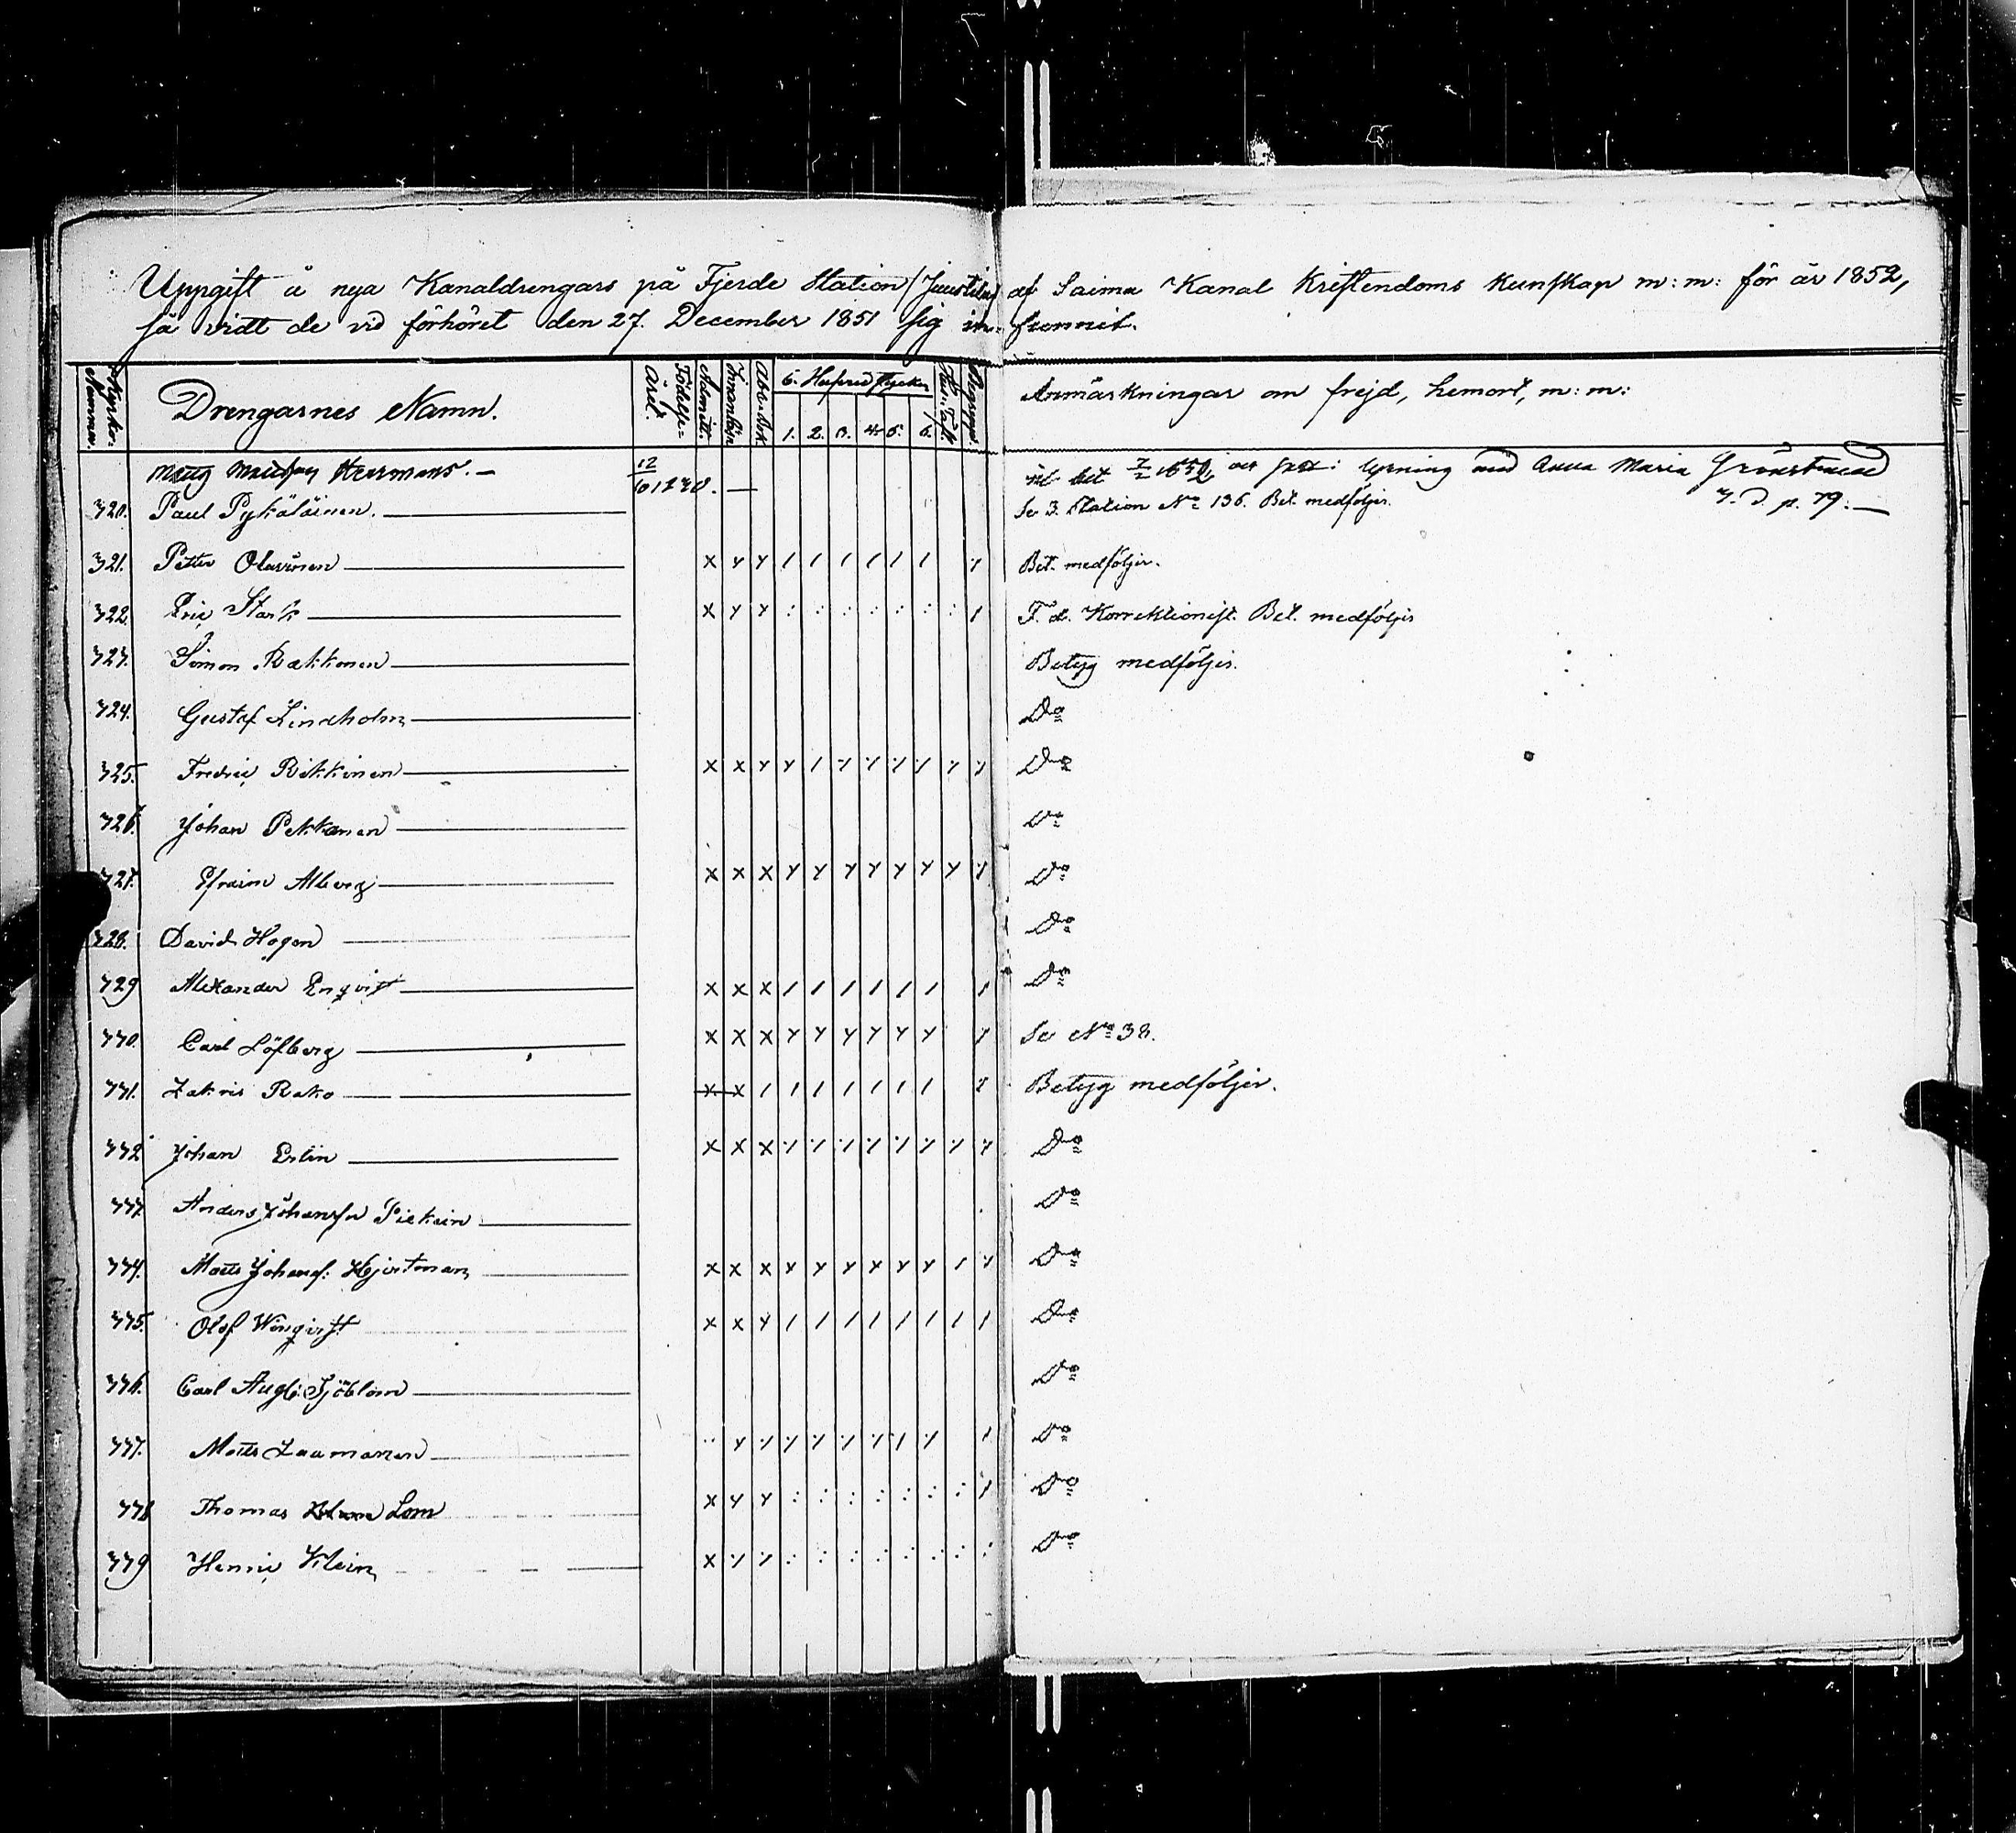 Uppgift å nya Kanaldrengars på Fjerde Station (Juustila) af Saima Kanal Kristendoms kunskap m: m: för år 1852,
så vidt de vid förhöret den 27. December 1851 sig infunnit.
Kyrko-Nummer. Drengarnes Namn. Födelse-Året. Admitt. Innanläsn. Abc-Bok 6. Hufvudstycken 1. 2. 3. 4. 5. 6. Hus-Tafl. Begrepp. Anmärkningar om frejd, hemort, m: m:
Herrmans. — 12/10 1230. — 1852 lysning med Anna Maria
320. Paul Pykäläinen. Se 3. Station No 136. Bet. medföljer. p. 79. —
321. Petter Olavinen x y y / / / / / / Bet. medföljer.
322. Eric Stark x y y : : : : : : : / F. d. Korrektionist. Bet. medföljer
323. Simon Rekkonen Betyg medföljer.
324. Gustaf Lindholm Do
325. Fredric Rikkinen x x y y / Do
326. Johan Pekkanen Do
327. Efraim Alberg x x x y y y y y y y Do
328. David Hagen Do
329 Alexander Enqvist x x x / / / / / / / Do
330. Carl Löfberg x x x y y y y y y Se No 38.
331. Zakris Rako x x / / / / / / / Betyg medföljer.
332 Johan Erlin x x x Do
333 Anders Johansson Do
334. Matts Johans: Hjertman x x x y y y y y y / y Do
335. Olof Winqvist x x y / / / / / / / / Do
336. Carl Aug: Sjöblom Do
337. Matts Laamanen Do
338 Thomas Lom x y y : : : : : : : / Do
339 Henric Klein x Do